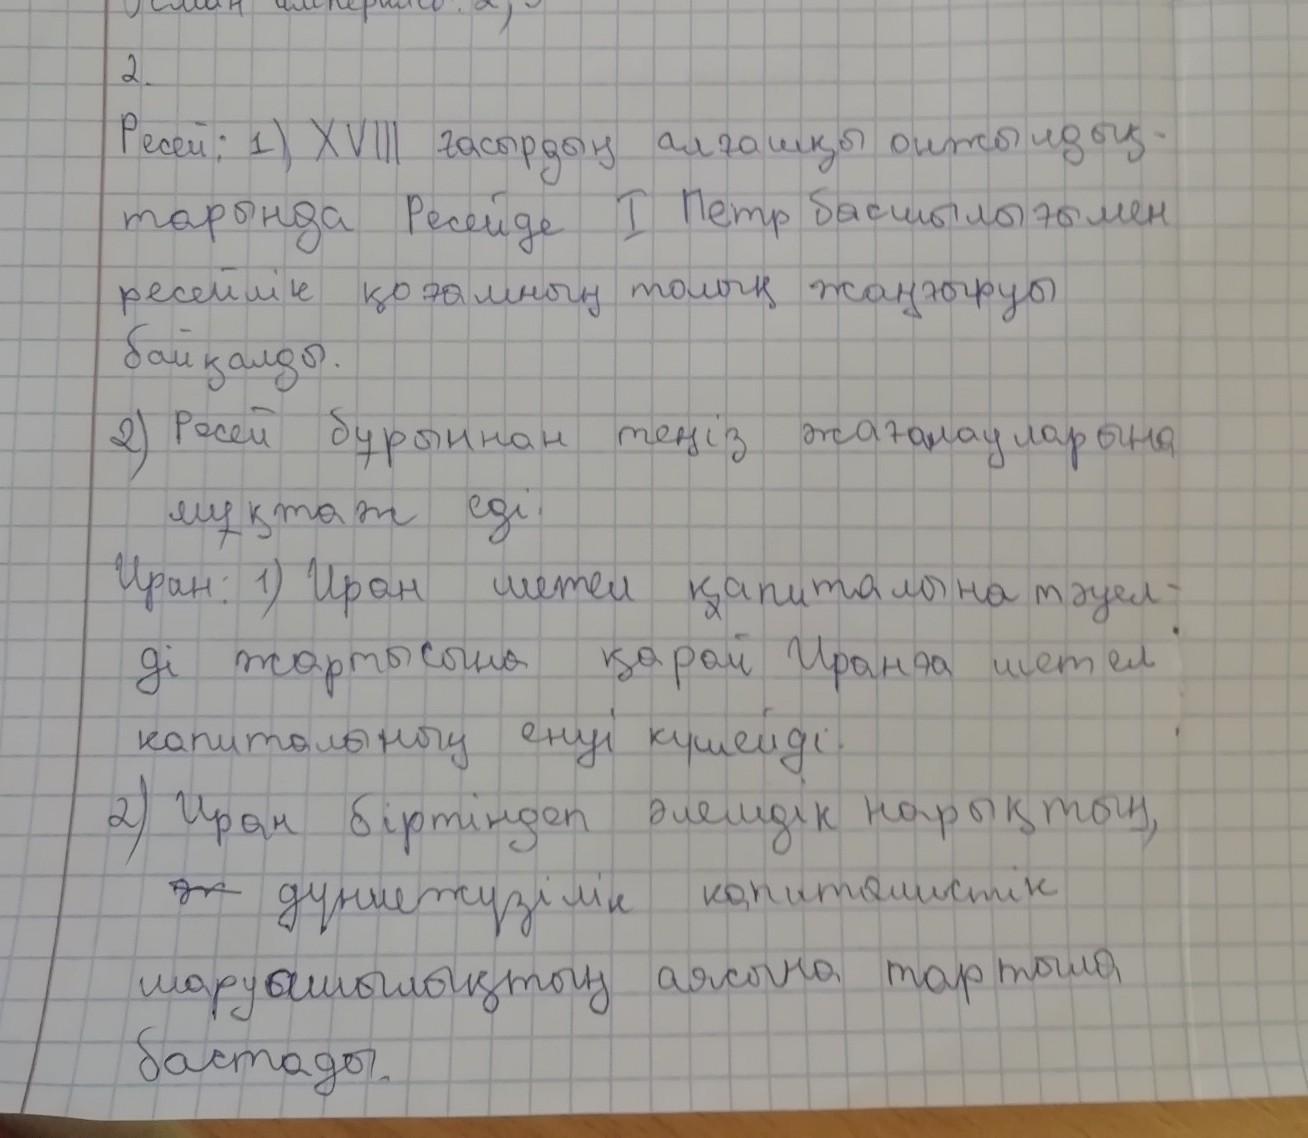 Осман империясы: 2)
2.
Ресей: 1) XVIII ғасырдың алғашқы онжылдық-
тарында Ресейде I Петр басшылығымен
ресейлік қоғамның толық жаңғыруы
байқалды.
2) Ресей бұрыннан теңіз жағалауларына
мұқтаж еді.
Иран: 1) Иран шетел қапиталына тәуел-
ді жартысына қарай Иранға шетел
капиталының енуі күшейді.
2) Иран біртіндеп әлемдік нарықтың,
дүниежүзілік капиталистік
шаруашылықтың аясына тартыла
бастады.